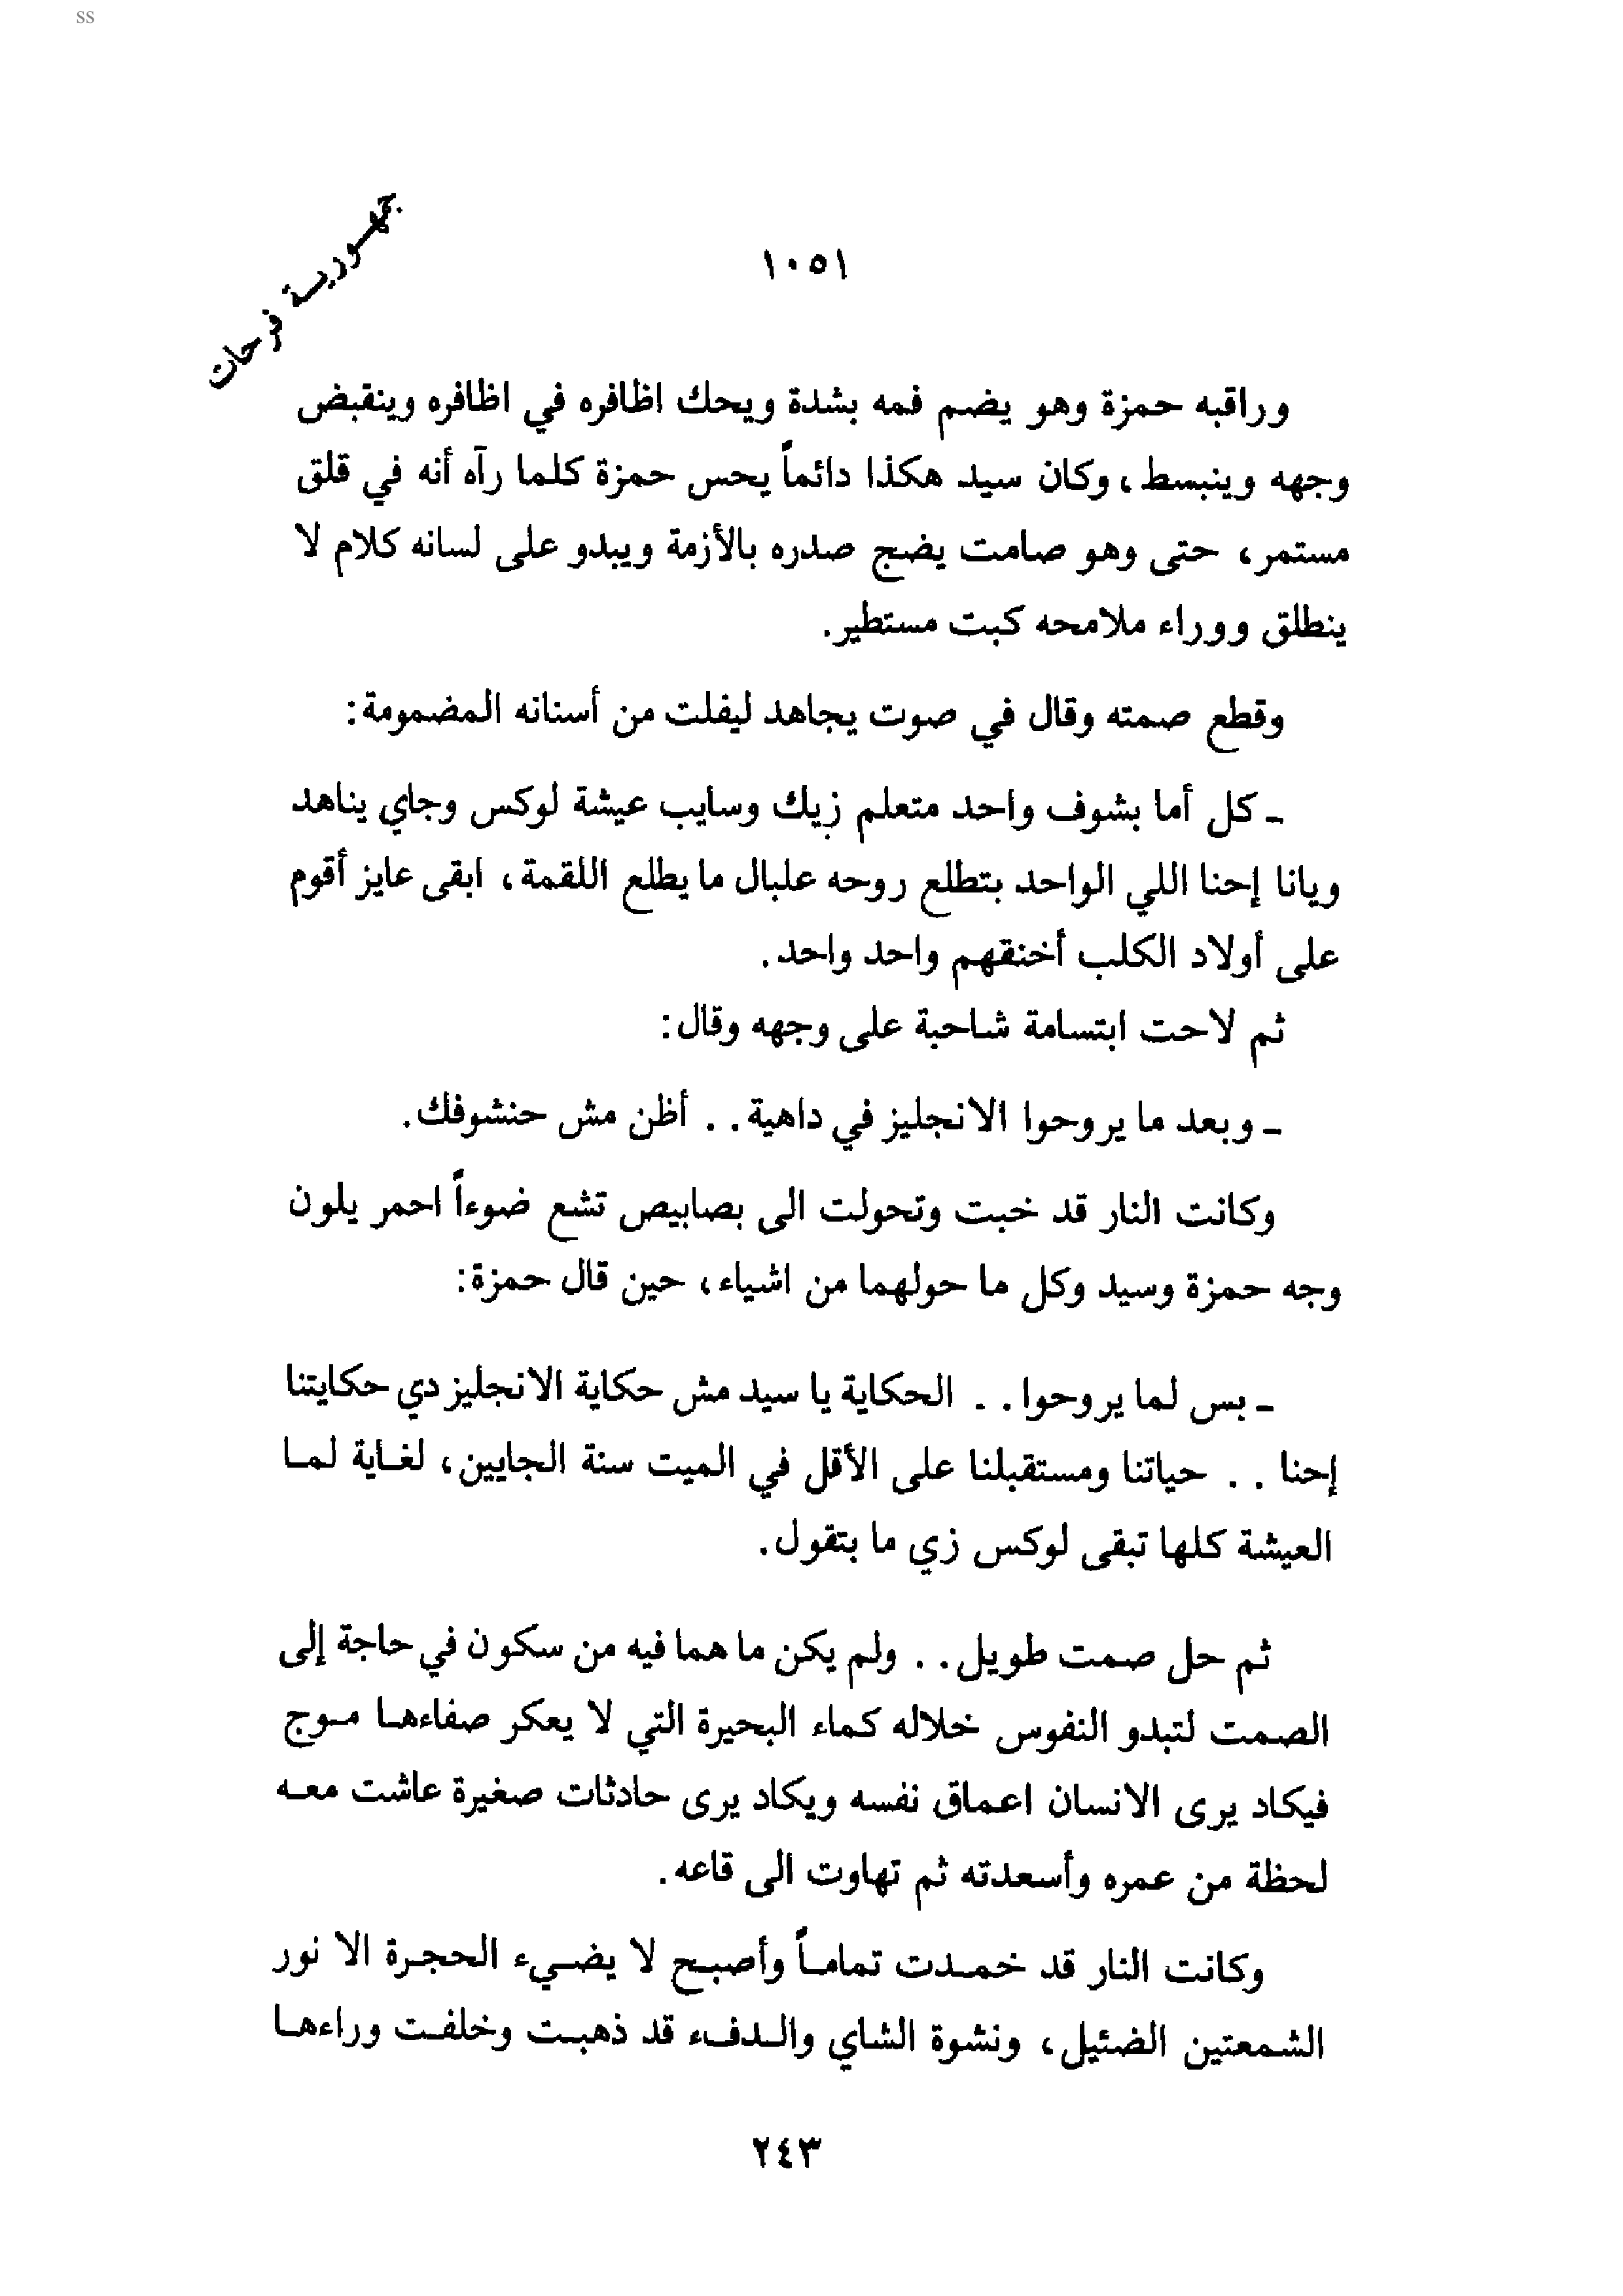 ss
جمهورية فرحات
١٠٥١
وراقبه حمزة وهو يضم فمه بشدة ويحك اظافره في اظافره وينقبض
وجهه وينبسط، وكان سيد هكذا دائماً يحس حمزة كلما رآه أنه في قلق
مستمر، حتى وهو صامت يضج صدره بالأزمة ويبدو على لسانه كلام لا
ينطلق ووراء ملامحه كبت مستطير.
وقطع صمته وقال في صوت يجاهد ليفلت من أسنانه المضمومة:
ـ كل أما بشوف واحد متعلم زيك وسايب عيشة لوكس وجاي يناهد
ويانا إحنا اللي الواحد بتطلع روحه علبال ما يطلع اللقمة، ابقى عايز أقوم
على أولاد الكلب أخنقهم واحد واحد.
ثم لاحت ابتسامة شاحبة على وجهه وقال:
ـ وبعد ما يروحوا الانجليز في داهية.. أظن مش حنشوفك.
وكانت النار قد خبت وتحولت الى بصابيص تشع ضوءاً احمر يلون
وجه حمزة وسيد وكل ما حولهما من اشياء، حين قال حمزة:
ـ بس لما يروحوا.. الحكاية يا سيد مش حكاية الانجليز دي حكايتنا
إحنا.. حياتنا ومستقبلنا على الأقل في الميت سنة الجايين، لغاية لما
العيشة كلها تبقى لوكس زي ما بتقول.
ثم حل صمت طويل.. ولم يكن ما هما فيه من سكون في حاجة إلى
الصمت لتبدو النفوس خلاله كماء البحيرة التي لا يعكر صفاءها موج
فيكاد يرى الانسان اعماق نفسه ويكاد يرى حادثات صغيرة عاشت معه
لحظة من عمره وأسعدته ثم تهاوت الى قاعه.
وكانت النار قد خمدت تماماً وأصبح لا يضيء الحجرة الا نور
الشمعتين الضئيل، ونشوة الشاي والدفء قد ذهبت وخلفت وراءها
٢٤٣